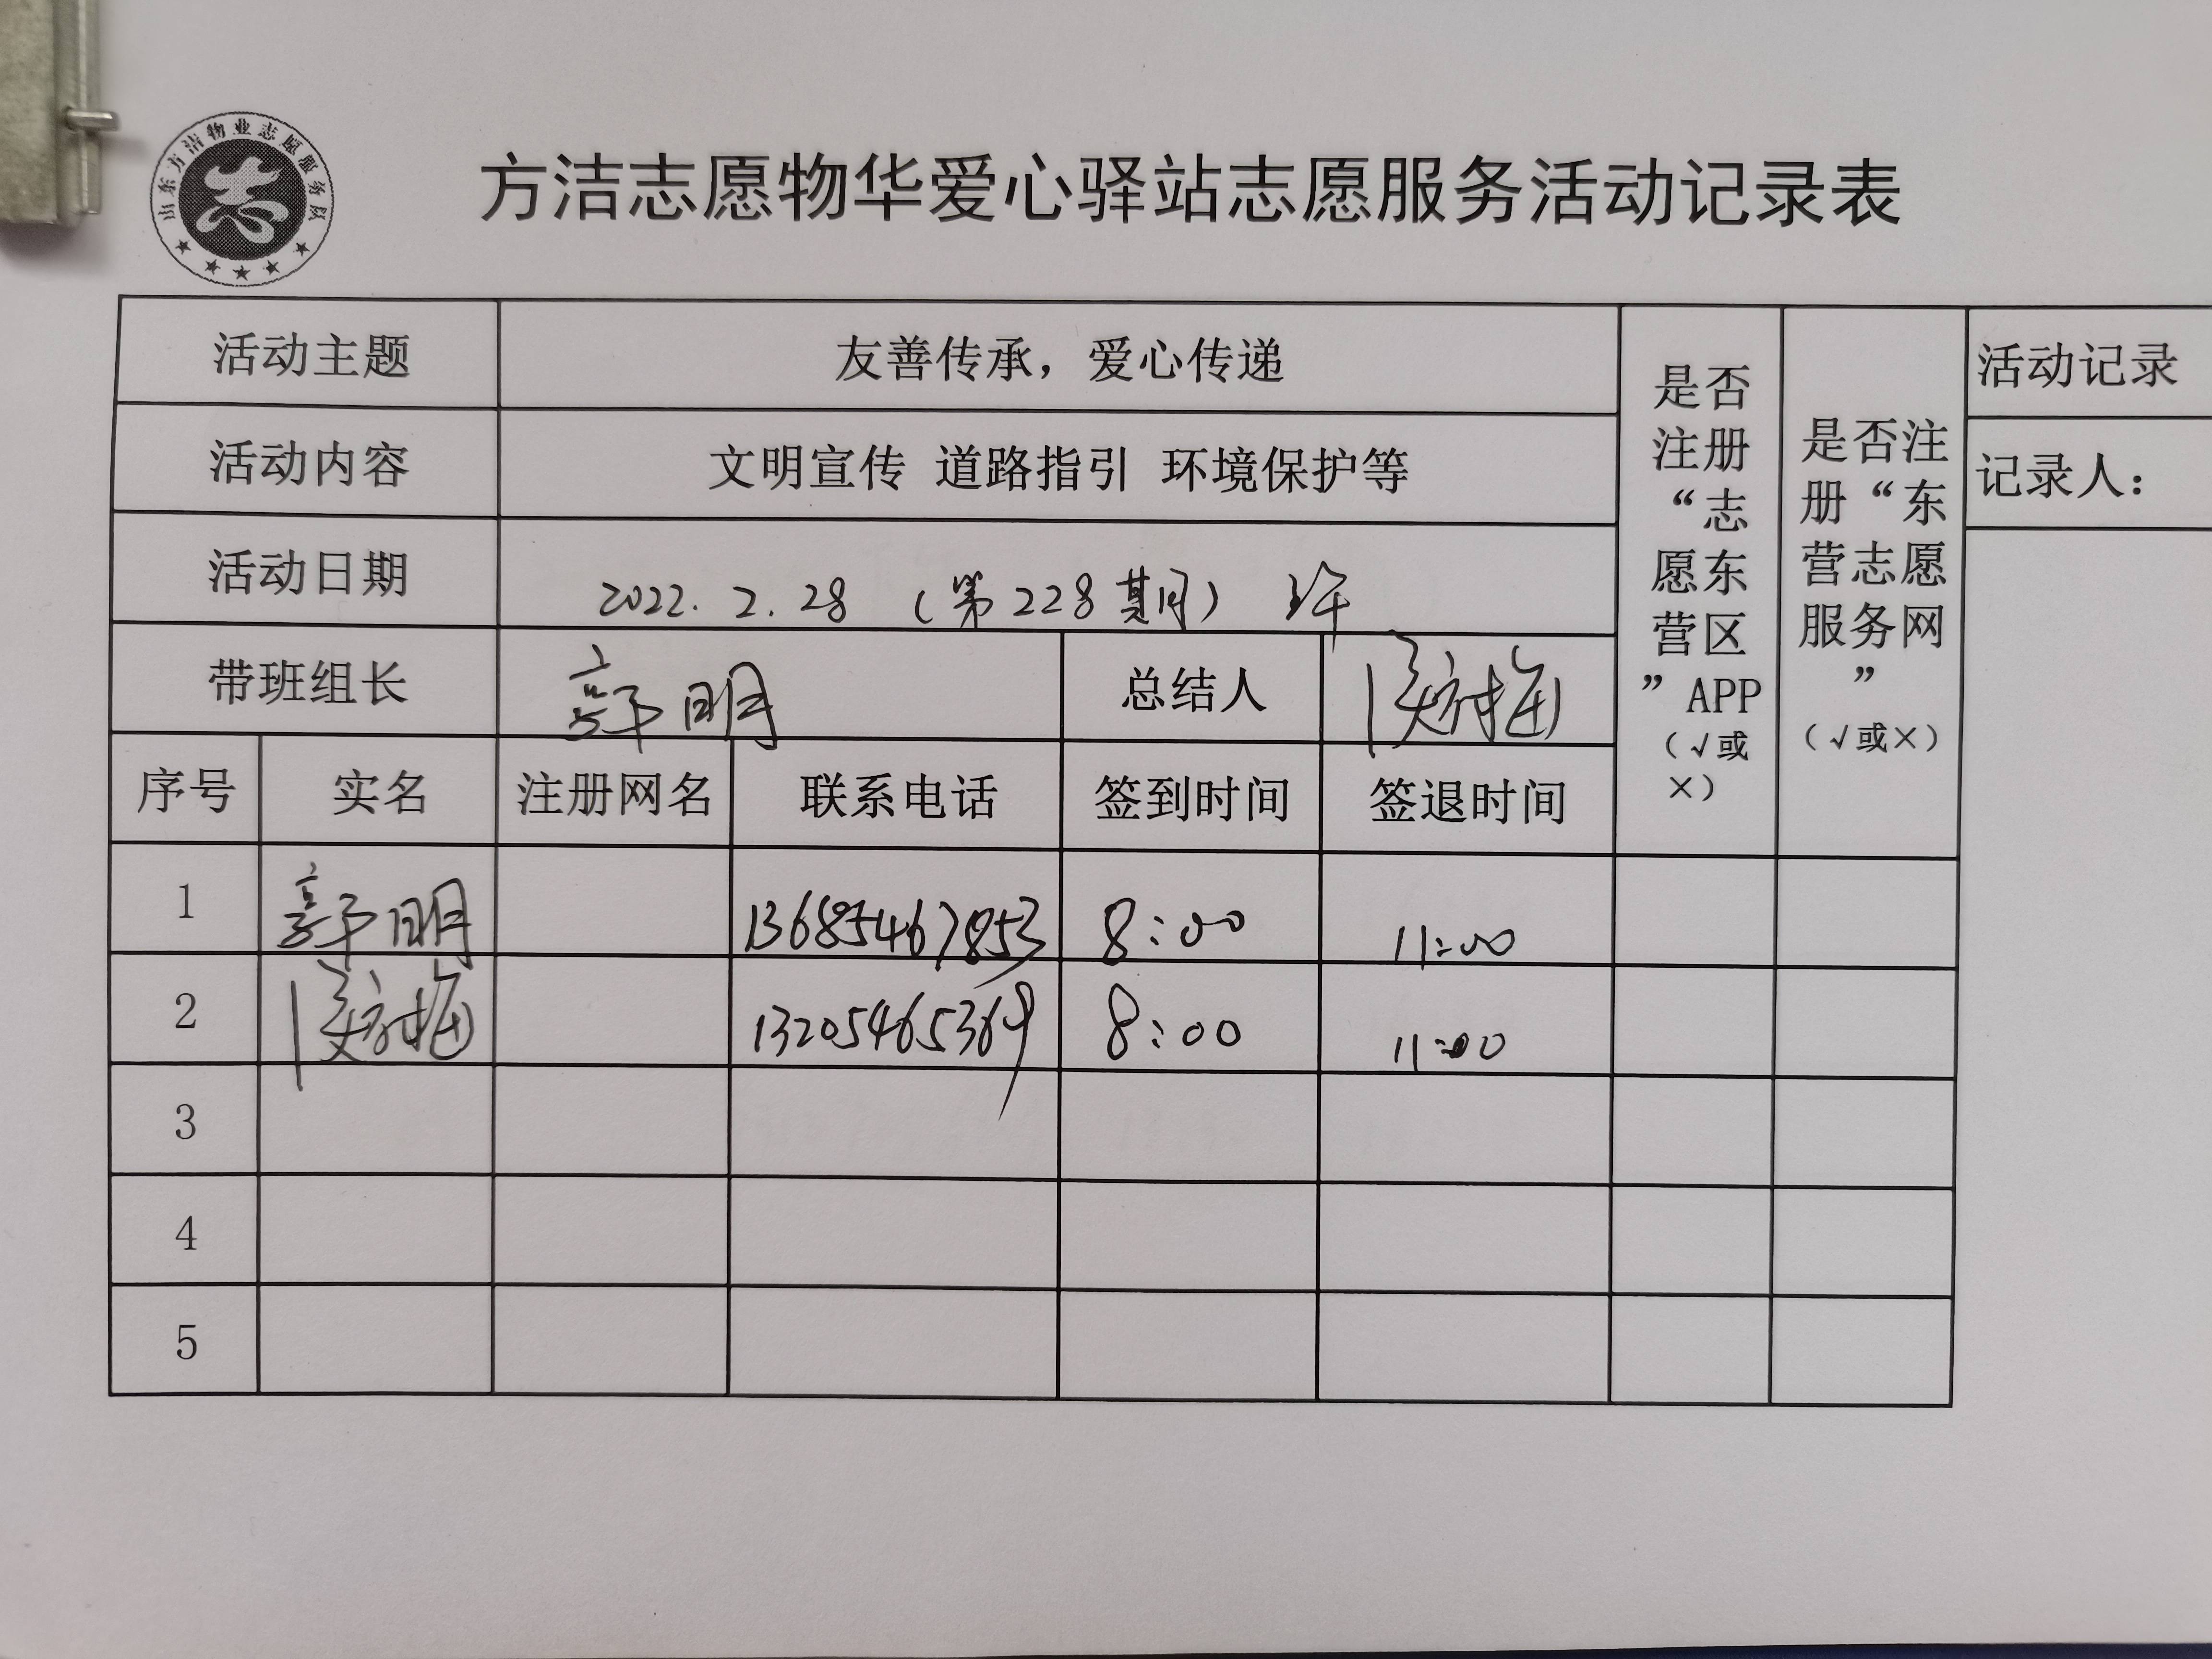 山东方洁物业志愿服务队
方洁志愿物华爱心驿站志愿服务活动记录表
活动主题 友善传承，爱心传递
活动内容 文明宣传 道路指引 环境保护等
活动日期 2022.2.28 （第228期）
带班组长 郭明 总结人
序号 实名 注册网名 联系电话 签到时间 签退时间
是否
注册
“志
愿东
营区
”APP
（√或
×）
是否注
册“东
营志愿
服务网
”
（√或×）
活动记录
记录人：
1 郭明 13685467853 8:00 11:00
2 13205465369 8:00 11:00
3
4
5